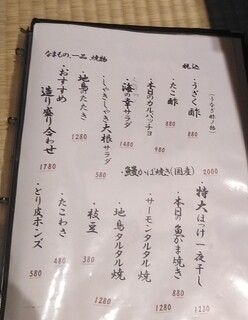 なまもの、一品、焼物
税込
（うなぎ酢の物）
・うざく酢 880
・たこ酢 880
・本日のカルパッチョ 980
・海の幸サラダ 1280
・しゃきしゃき大根サラダ 580
・地鳥のたたき 1280
・おすすめ造り盛り合わせ 1780
・鰻かば焼き(国産) 2000
・特大ほっけ一夜干し 1280
・本日の魚かま焼き 880
・サーモンタルタル焼 1280
・地鳥タルタル焼 1280
・枝豆 380
・たこわさ 480
・とり皮ポンズ 580